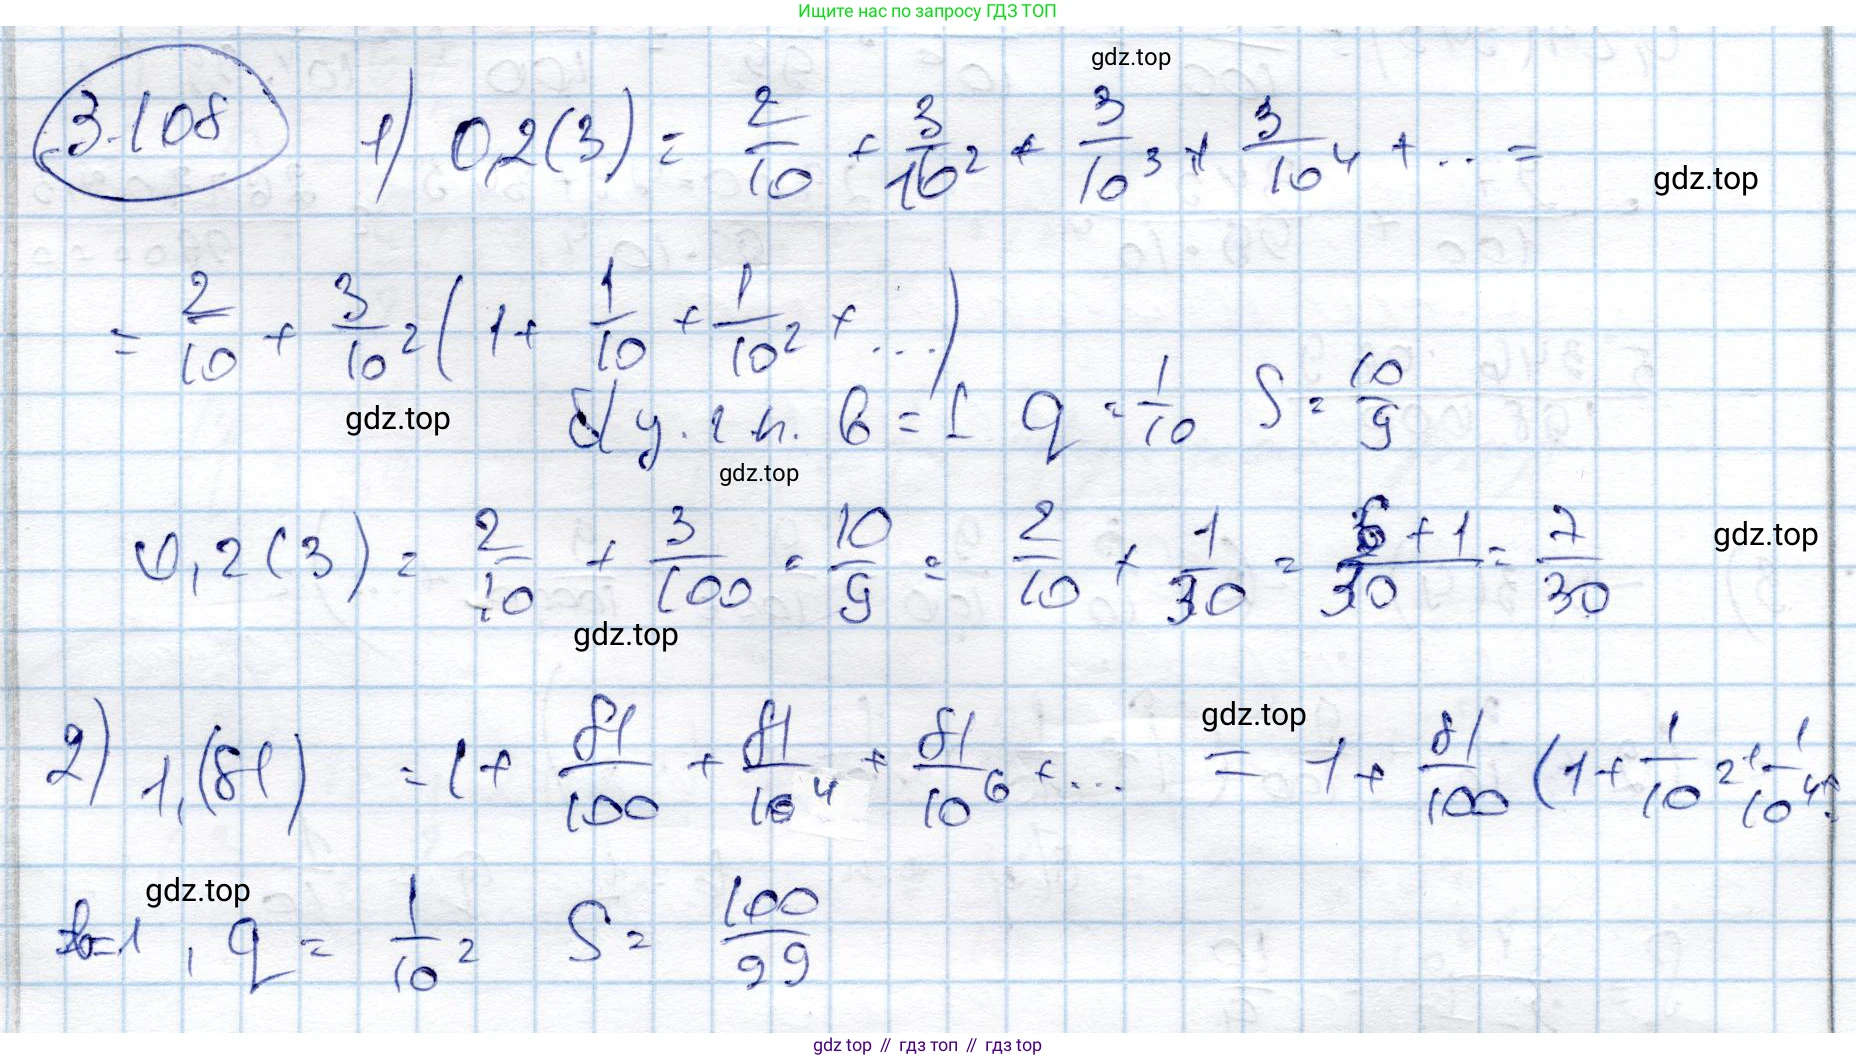 Ищите нас по запросу ГДЗ ТОП
gdz.top
3.108 1) 0,2(3) = 2/10 + 3/10² + 3/10³ + 3/10⁴ + ... =
gdz.top
= 2/10 + 3/10² (1 + 1/10 + 1/10² + ...)
gdz.top
б/у.г.п. b = 1 q = 1/10 S = 10/9
gdz.top
0,2(3) = 2/10 + 3/100 · 10/9 = 2/10 + 1/30 = 6+1/30 = 7/30
gdz.top
gdz.top
2) 1,(81) = 1 + 81/100 + 81/10⁴ + 81/10⁶ + ... = 1 + 81/100 (1 + 1/10² + 1/10⁴ +
gdz.top
gdz.top
b=1, q = 1/10² S = 100/99
gdz top // гдз топ // gdz top